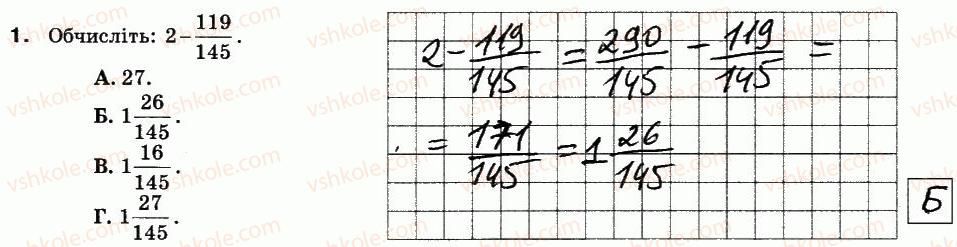 1. Обчисліть: 2 − 119/145.
А. 27.
Б. 1 26/145.
В. 1 16/145.
Г. 1 27/145.
2 − 119/145 = 290/145 − 119/145 =
= 171/145 = 1 26/145
Б